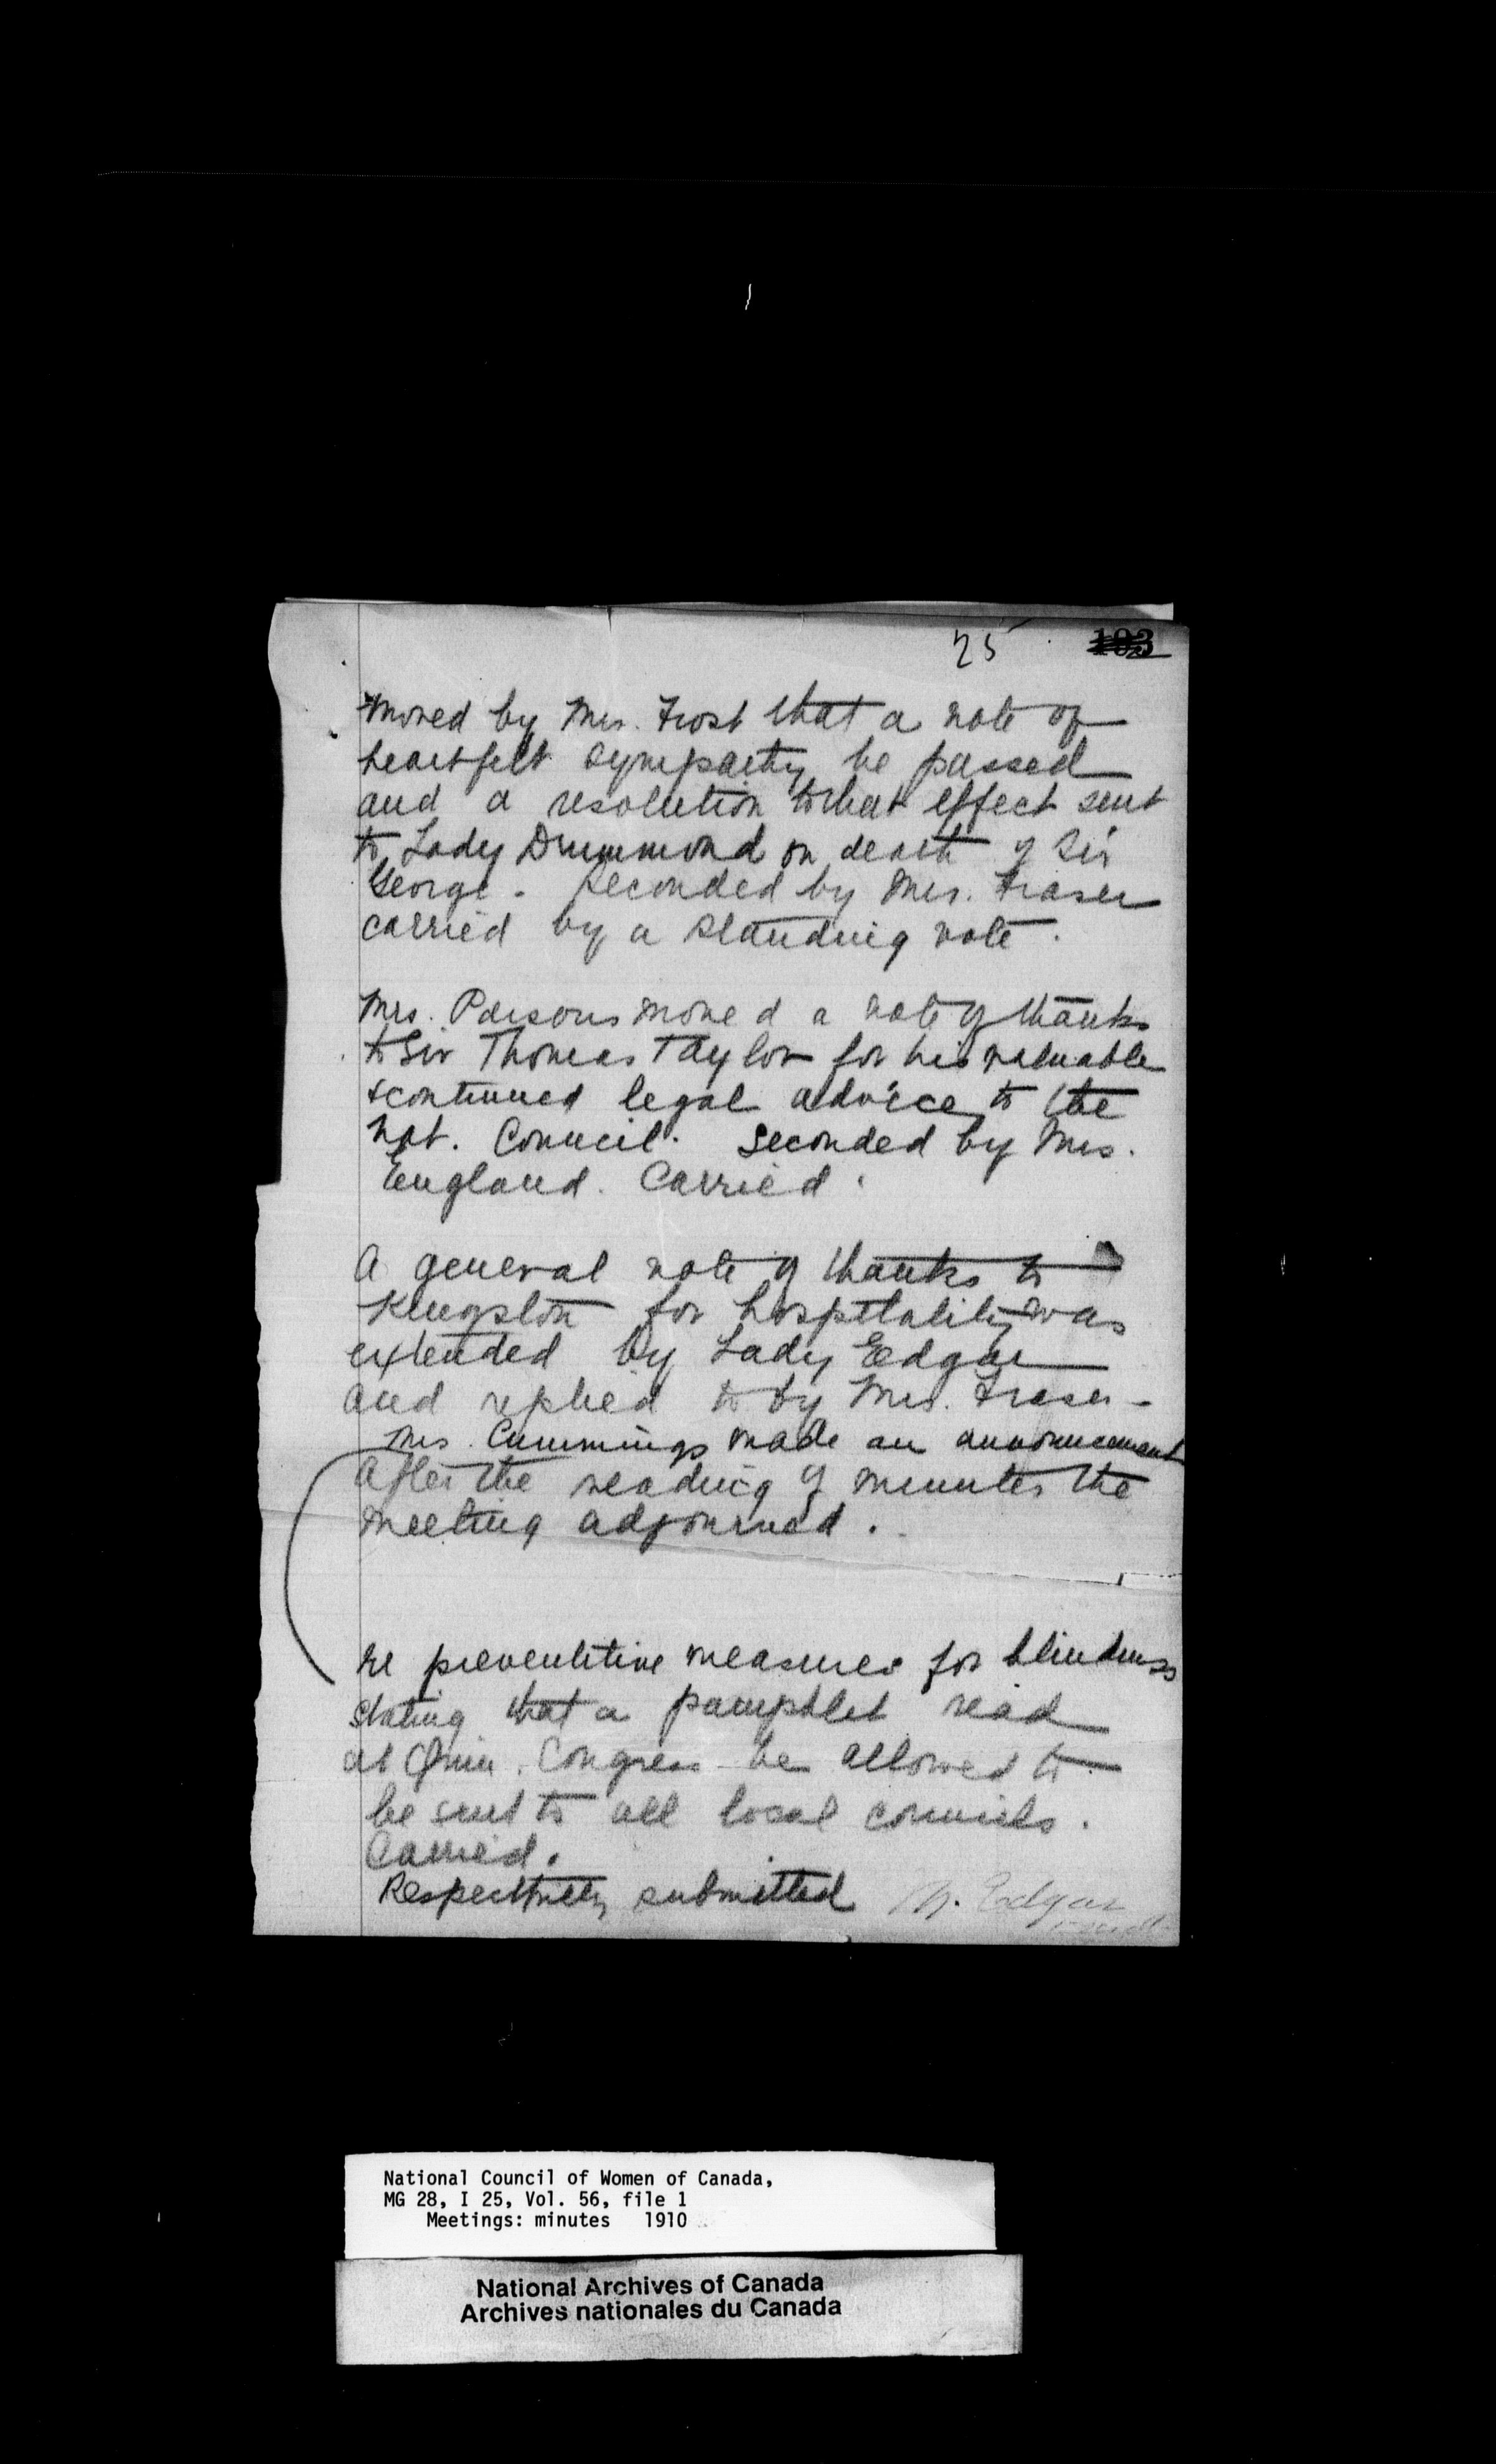 25 193
Moved by Mrs. Frost that a vote of
heartfelt sympathy be passed
and a resolution to that effect sent
to Lady Drummond on death of Sir
George. Seconded by Mrs. Fraser
carried by a standing vote.
Mrs. Parsons moved a vote of thanks
to Sir Thomas Taylor for his valuable
& continued legal advice to the
Nat. Council. Seconded by Mrs.
England. Carried.
A general vote of thanks to
Kingston for hospitality was
extended by Lady Edgar
and replied to by Mrs. Fraser -
Mrs. Cummings made an announcement
After the reading of minutes the
meeting adjourned.
re preventitive measures for blindness
stating that a pamphlet read
at Quin. Congress be allowed to
be sent to all local councils.
Carried.
Respectfully submitted M. Edgar
National Council of Women of Canada,
MG 28, I 25, Vol. 56, file 1
Meetings: minutes 1910
National Archives of Canada
Archives nationales du Canada